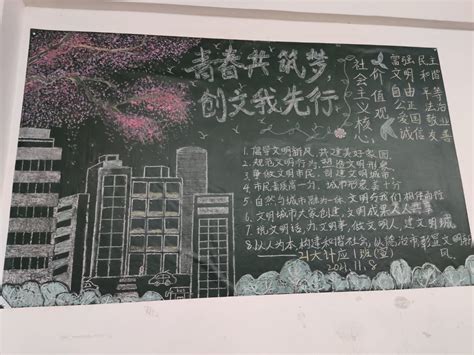 青春共筑梦,
创文我先行
社会主义核心
价值观
富强 民主
文明 和谐
自由 平等
公正 法治
爱国 敬业
诚信 友善
1.倡导文明新风,共建美好家园.
2.规范文明行为,塑造文明形象
3.争做文明市民,创建文明城市
4.市民素质高一分,城市形象美十分
5.自然与城市融为一体,文明与我们相伴前行
6.文明城市大家创建,文明成果人人共享
7.讲文明话,办文明事,做文明人,建文明城
8.以人为本构建和谐社会,以德治市彰显文明
风
21大计应1班(宣)
2021.11.8